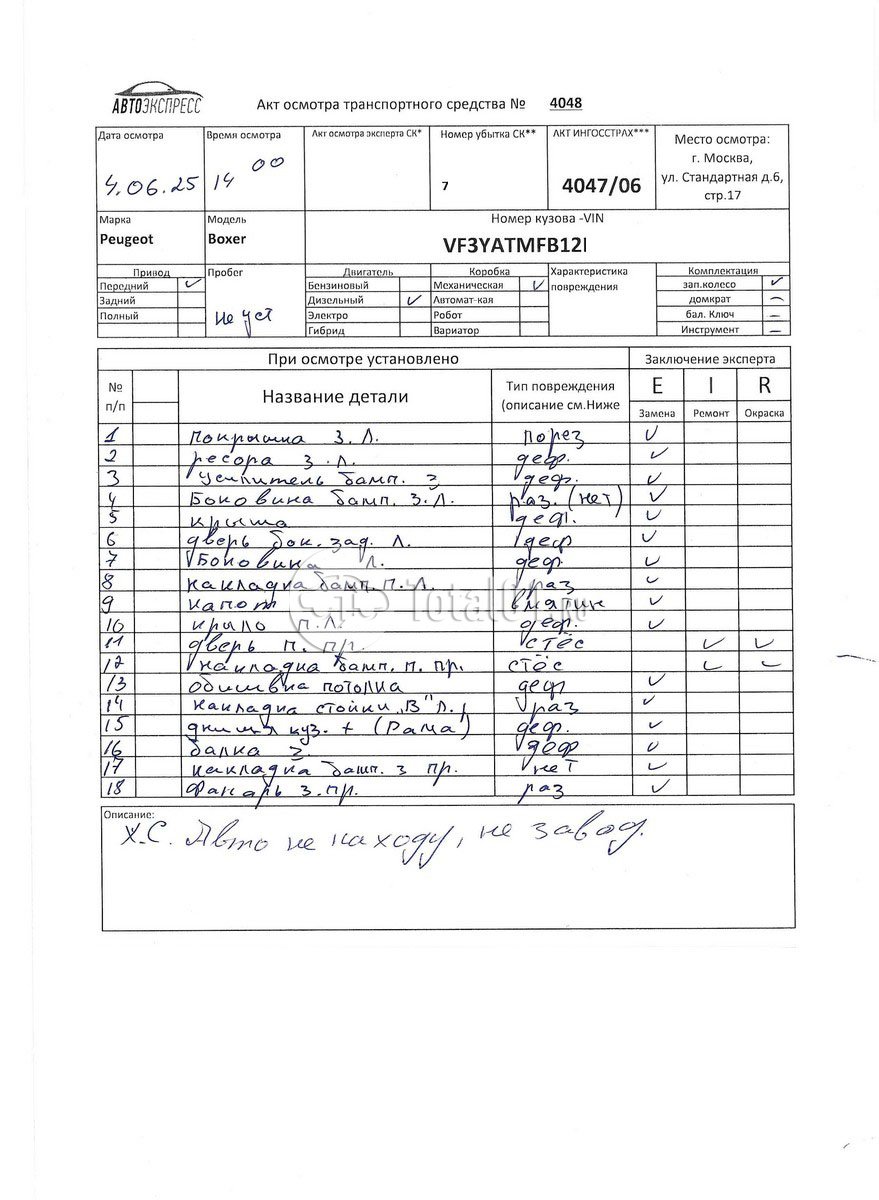 АВТОЭКСПРЕСС
Акт осмотра транспортного средства № 4048
Дата осмотра
4.06.25
Время осмотра
14 00
Акт осмотра эксперта СК*
Номер убытка СК**
7
АКТ ИНГОССТРАХ***
4047/06
Место осмотра:
г. Москва,
ул. Стандартная д.6,
стр.17
Марка
Peugeot
Модель
Boxer
Номер кузова -VIN
VF3YATMFB12I
Привод
Передний ✓
Задний
Полный
Пробег
не уст
Двигатель
Бензиновый
Дизельный ✓
Электро
Гибрид
Коробка
Механическая ✓
Автомат-кая
Робот
Вариатор
Характеристика
повреждения
Комплектация
зап.колесо ✓
домкрат –
бал. Ключ –
Инструмент –
При осмотре установлено Заключение эксперта
№ п/п Название детали Тип повреждения (описание см.Ниже E Замена I Ремонт R Окраска
1 покрышка з. л. порез ✓
2 ресора з. л. деф. ✓
3 усилитель бамп. з деф. ✓
4 Боковина бамп. з. л. раз. (нет) ✓
5 крыша деф. ✓
6 дверь бок. зад. л. деф ✓
7 Боковина л. деф. ✓
8 накладка бамп. п. л. раз ✓
9 капот вмятин ✓
10 крыло п. л. деф. ✓
11 дверь п. пр. стёс ✓ ✓
12 накладка бамп. п. пр. стёс ✓ ✓
13 обшивка потолка деф ✓
14 накладка стойки „В" л. раз ✓
15 днища куз. + (Рама) деф. ✓
16 балка з. деф ✓
17 накладка бамп. з пр. нет ✓
18 Фанарь з. пр. раз ✓
Описание:
Х.С. Авто не на ходу, не завод.
Total01.ru